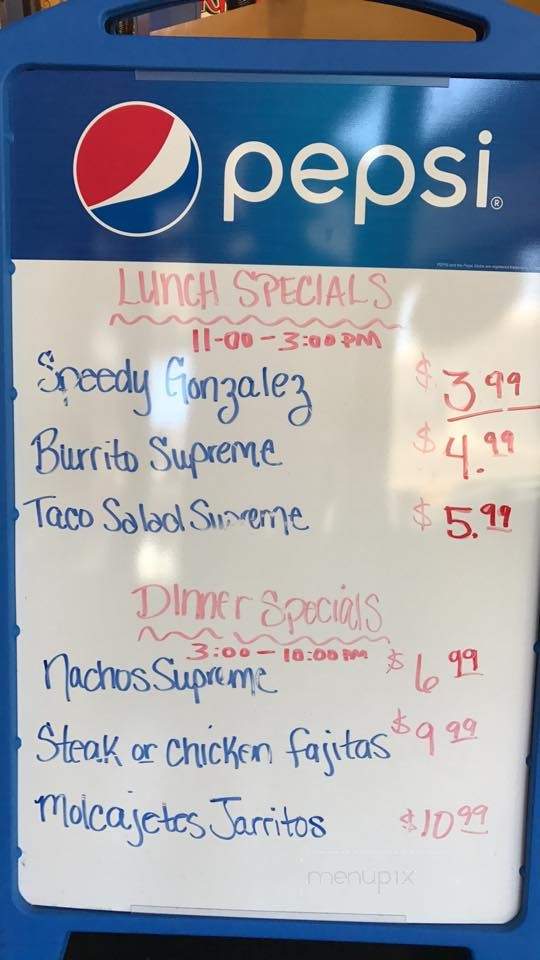 pepsi®
LUNCH SPECIALS
11-00-3:00 PM
Speedy Gonzalez $3.99
Burrito Supreme $4.99
Taco Salad Supreme $5.99
Dinner Specials
3:00-10:00 PM
Nachos Supreme $6.99
Steak or chicken fajitas $9.99
Molcajetes Jarritos $10.99
menupix